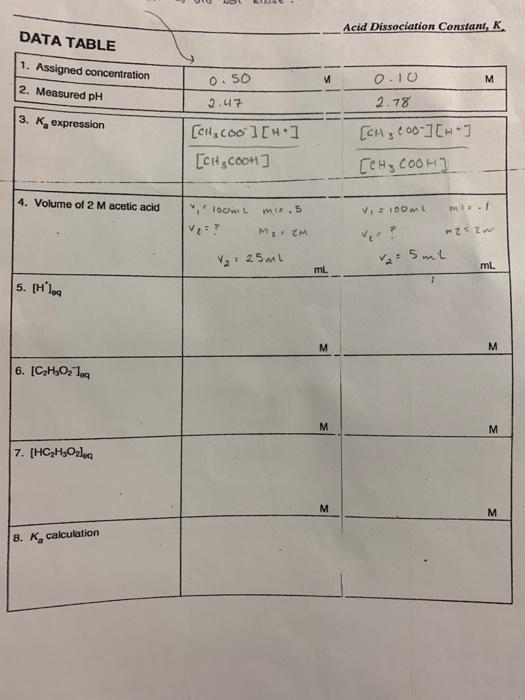 Acid Dissociation Constant, Kₐ
DATA TABLE
1. Assigned concentration 0.50 M 0.10 M
2. Measured pH 2.47 2.78
3. Kₐ expression [CH₃COO⁻][H⁺] [CH₃COO⁻][H⁺]
[CH₃COOH] [CH₃COOH]
4. Volume of 2 M acetic acid V₁ = 100mL M1=.5 V₁ = 100mL M1=.1
V₂=? M2=2M V₂=? M2=2M
V₂=25mL mL V₂=5mL mL
5. [H⁺]eq
M M
6. [C₂H₃O₂⁻]eq
M M
7. [HC₂H₃O₂]eq
M M
8. Kₐ calculation